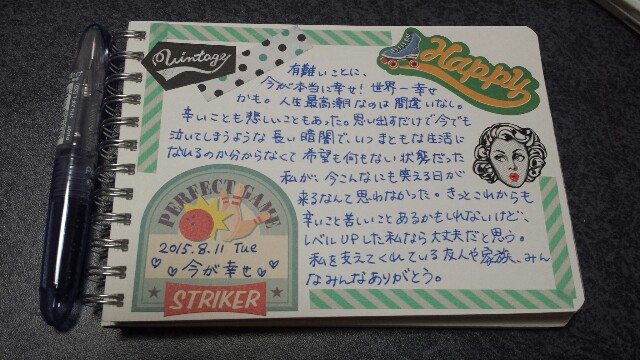 Vintage
Happy
有難いことに、
今が本当に幸せ！世界一幸せ
かも。人生最高潮なのは間違いなし。
辛いことも悲しいこともあった。思い出すだけで今でも
泣いてしまうような長い暗闇で、いつまともな生活に
なれるのか分からなくて希望も何もない状態だった
私が、今こんなにも笑える日が
来るなんて思わなかった。きっとこれからも
辛いこと苦しいことあるかもしれないけど、
レベルUPした私なら大丈夫だと思う。
私を支えてくれている友人や家族、みん
なみんなありがとう。
PERFECT GAME
2015.8.11 Tue
♡♡今が幸せ♡♡
STRIKER